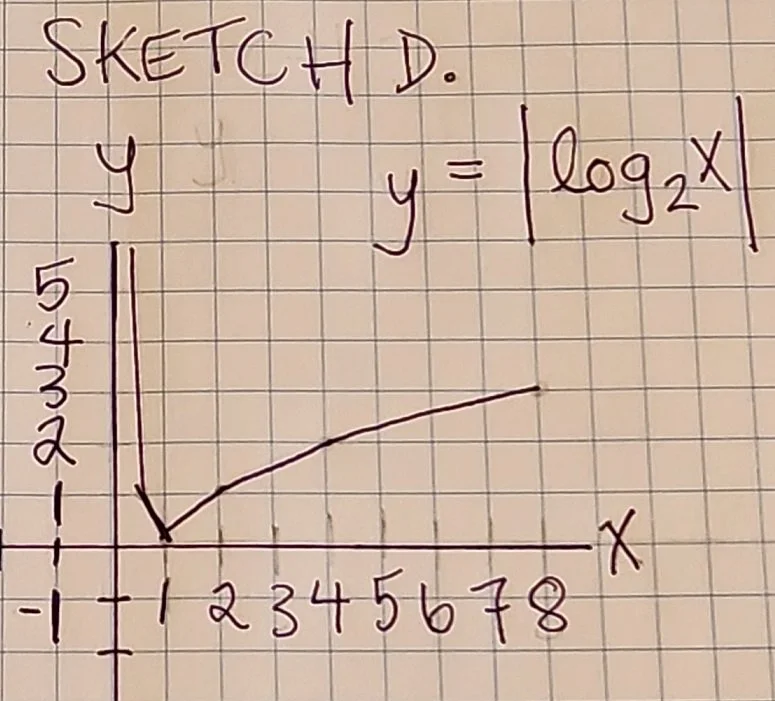 SKETCH D.
y y
y = |log₂x|
5
4
3
2
1
x
-1 1 2 3 4 5 6 7 8